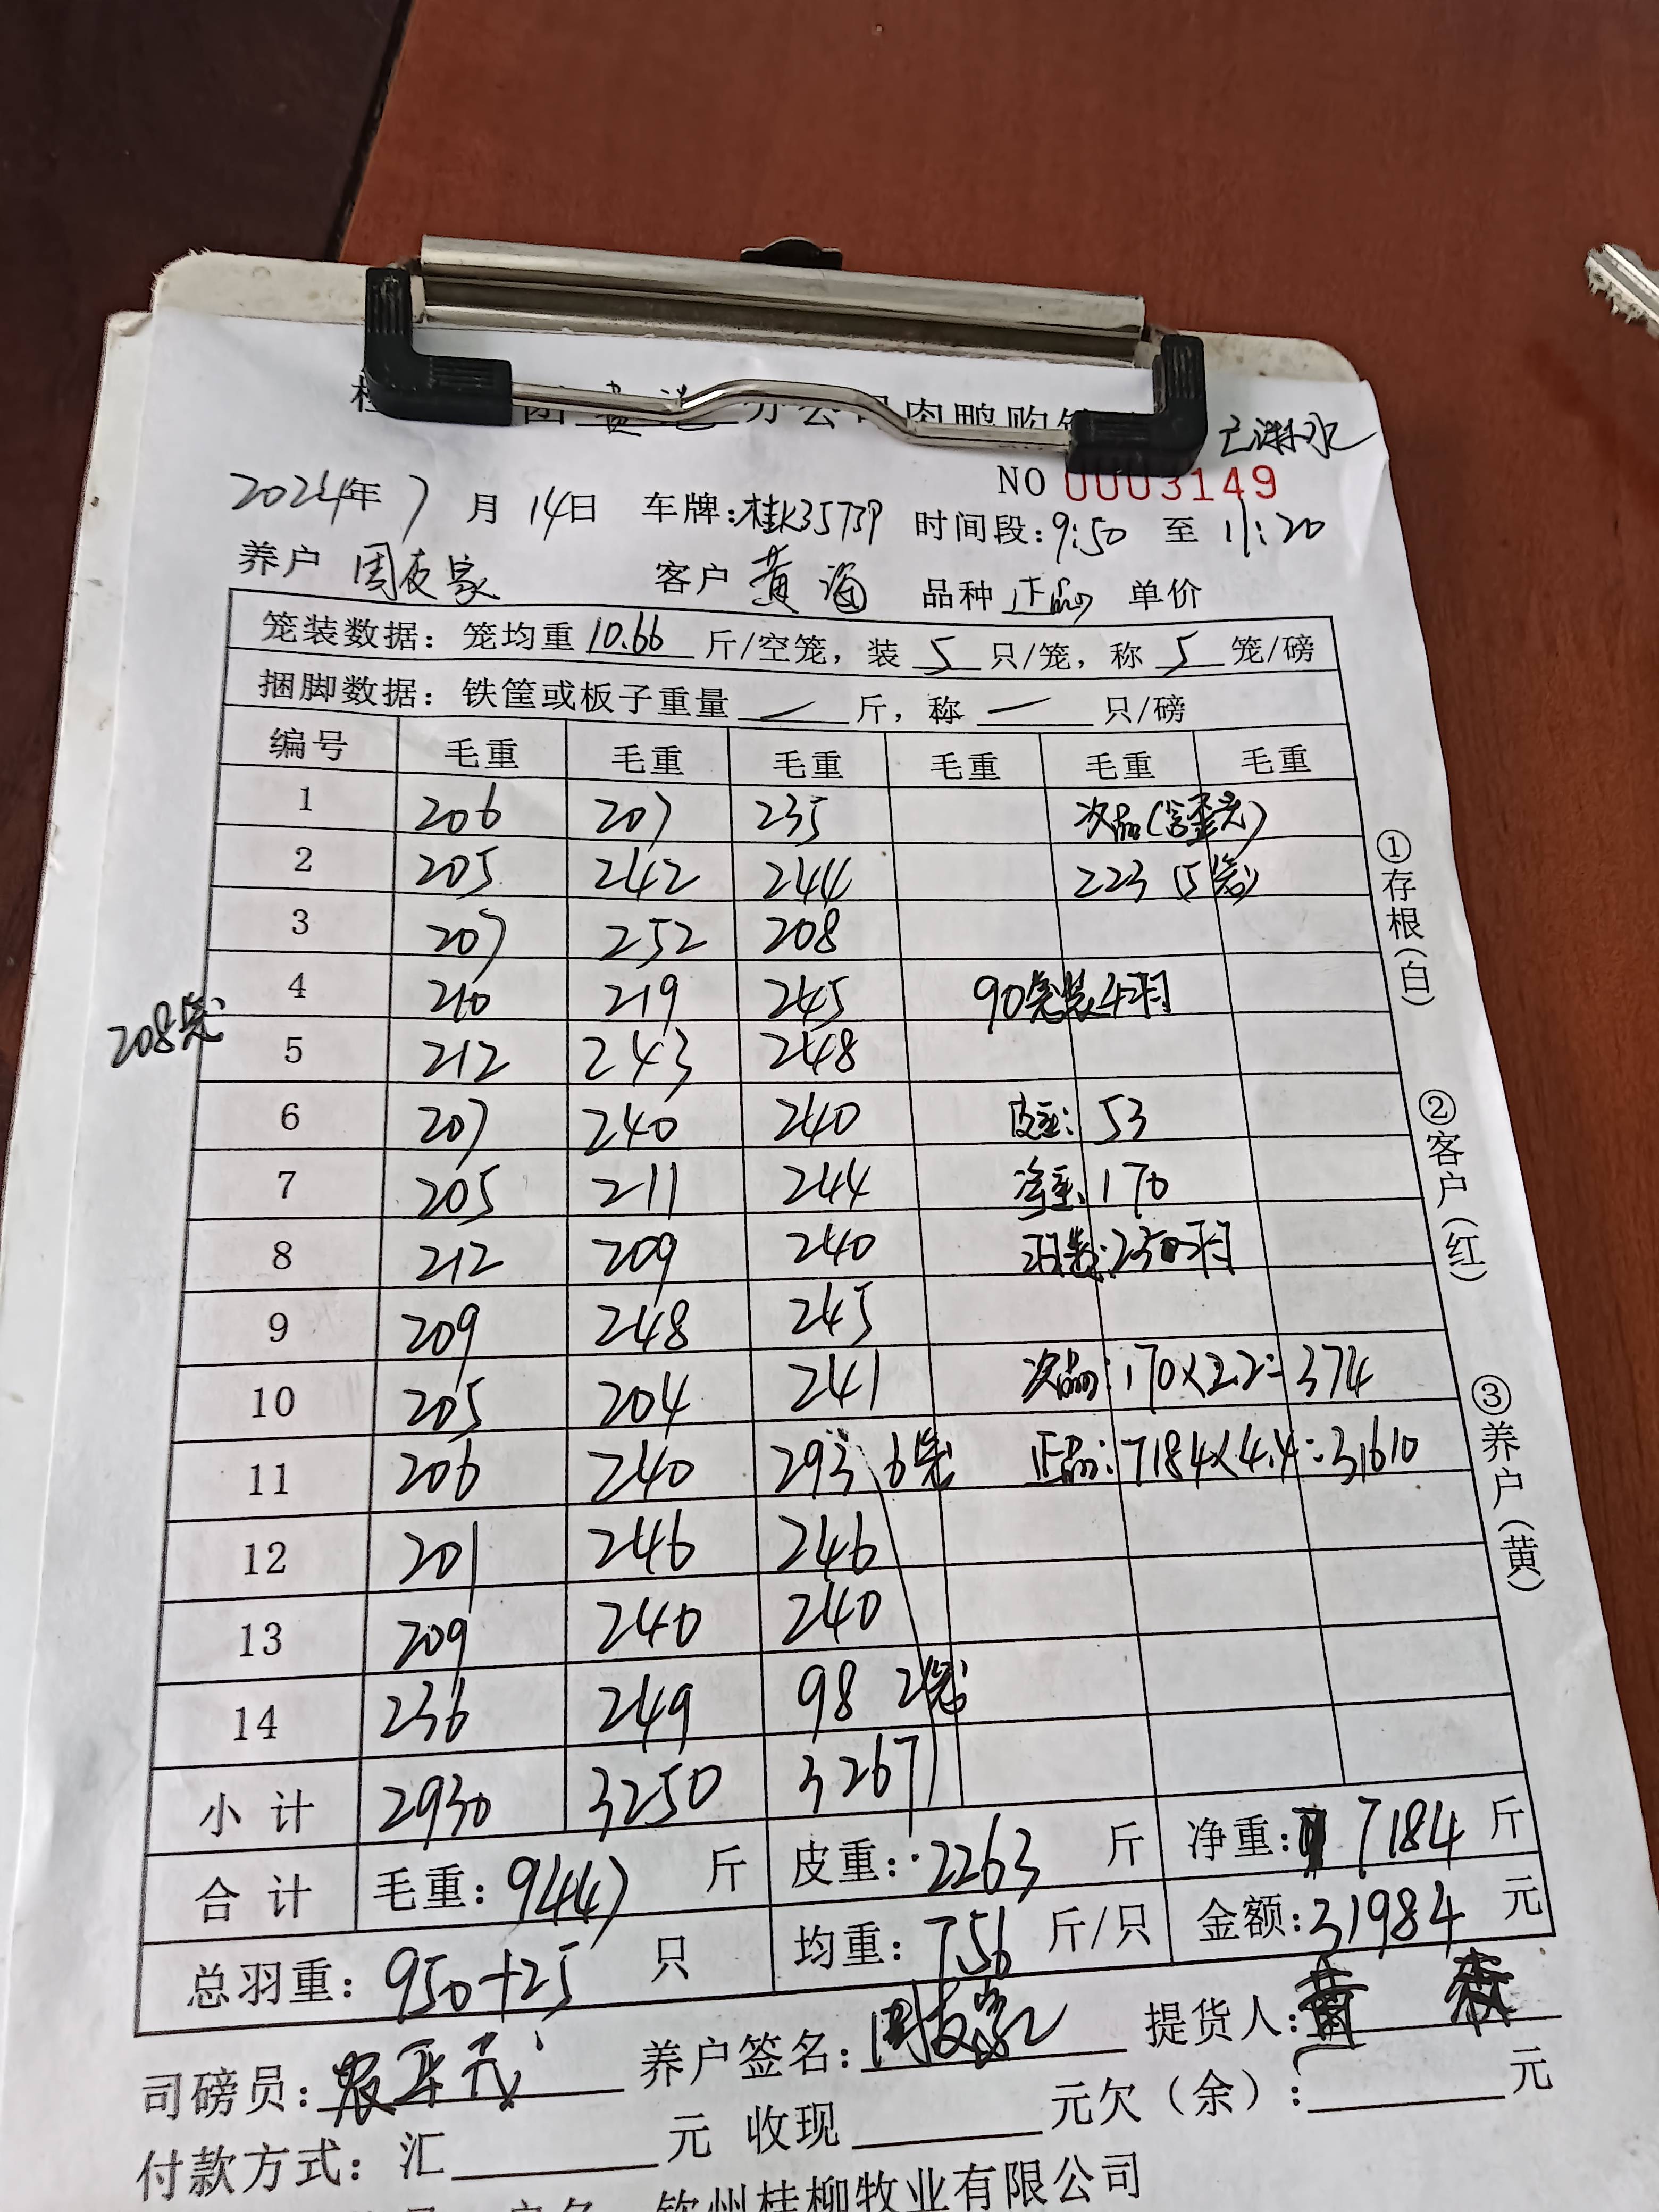 团 贵港 分公司肉鸭购销
已淋水
NO 0003149
2024年 7 月 14日 车牌:桂K35739 时间段:9:50 至 11:20
养户 周友家 客户 黄海 品种 正品 单价
笼装数据: 笼均重 10.66 斤/空笼, 装 5 只/笼, 称 5 笼/磅
捆脚数据: 铁筐或板子重量 — 斤, 称 — 只/磅
编号 毛重 毛重 毛重 毛重 毛重 毛重
1 206 207 235 次品(含歪壳)
2 205 242 244 223 (5笼)
3 207 252 208
4 210 219 245 90笼装4羽
208笼
5 212 243 248
6 207 240 240 皮重: 53
7 205 211 244 净重: 170
8 212 209 240 羽数: 25羽
9 209 248 245
10 205 204 241 次品: 170×2.2=374
11 206 240 293 6笼 正品: 7184×4.4=31610
12 201 246 246
13 209 240 240
14 236 249 98 2笼
小计 2930 3250 3267
合计 毛重: 9447 斤 皮重: 2263 斤 净重: 7184 斤
总羽重: 950+25 只 均重: 7.56 斤/只 金额: 31984 元
司磅员: 养户签名: 周友家 提货人: 黄
付款方式: 汇 元 收现 元欠(余): 元
钦州桂柳牧业有限公司
①存根(白)
②客户(红)
③养户(黄)